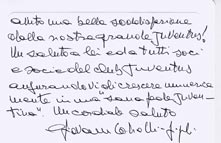 avuto una bella soddisfazione
dalla nostra grande Juventus!
Un saluto a lei ed a tutti i soci
e socie del club Juventus
augurandovi di crescere numerica
mente in una "sana fede juven
tina". Un cordiale saluto